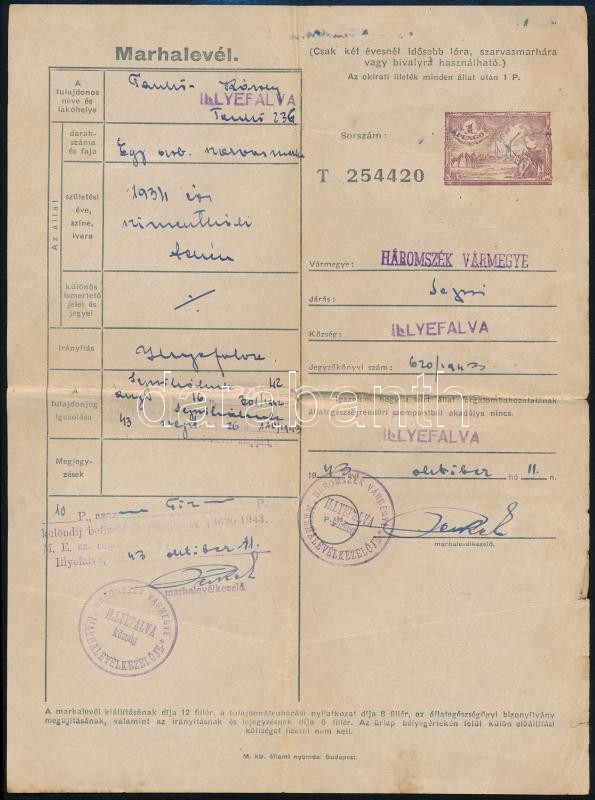 Marhalevél.
(Csak két évesnél idősebb lóra, szarvasmarhára
vagy bivalyra használható.)
Az okirati illeték minden állat után 1 P.
A
tulajdonos
neve és
lakóhelye
Károly
ILLYEFALVA
darab-
száma
és faja
Egy drb. szarvasmarha
Az állat
születési
éve,
színe,
ivara
különös
ismertető
jelei és
jegyei
Irányítás
Illyefalva
A
tulajdonjog
igazolása
Megjegy-
zések
Sorszám:
T 254420
1
PENGŐ
Vármegye: HÁROMSZÉK VÁRMEGYE
Járás: Sepsi
Község: ILLYEFALVA
Jegyzőkönyvi szám: 620/1943
Igazolom, hogy a leírt állat forgalombahozatalának
állategészségrendőri szempontból akadálya nincs.
ILLYEFALVA
1943 évi október hó 11.n.
P. H.
marhalevélkezelő.
HÁROMSZÉK VÁRMEGYE
ILLYEFALVA
község
MARHALEVÉLKEZELŐJE
10 P., azaz Tíz P.
különdíj befizetve
M. E. sz.
Illyefalva, 43 október 11.
marhalevélkezelő.
HÁROMSZÉK VÁRMEGYE
ILLYEFALVA
község
MARHALEVÉLKEZELŐJE
darabanth
A marhalevél kiállításának díja 12 fillér, a tulajdonátruházási nyilatkozat díja 8 fillér, az állategészségügyi bizonyítvány
megújításának, valamint az irányításnak és lejegyzésnek díja 6 fillér. Az űrlap bélyegértékén felül külön előállítási
költséget fizetni nem kell.
M. kir. állami nyomda. Budapest